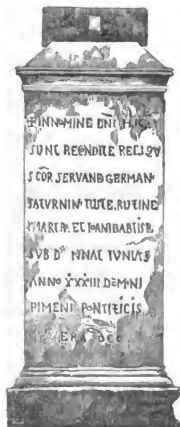 INNOMINE DNI HIC
SUNT RECONDITE RELIQV
SCŌR SERVAND GERMAN
SATURNIN IUSTE RUFINE
MARTIR ET IOANI BABTISTE
SUB D NNAL IUNIAS
ANNO XXXIII DŌMNI
PIMENI PONTIFICIS
ERA DCC